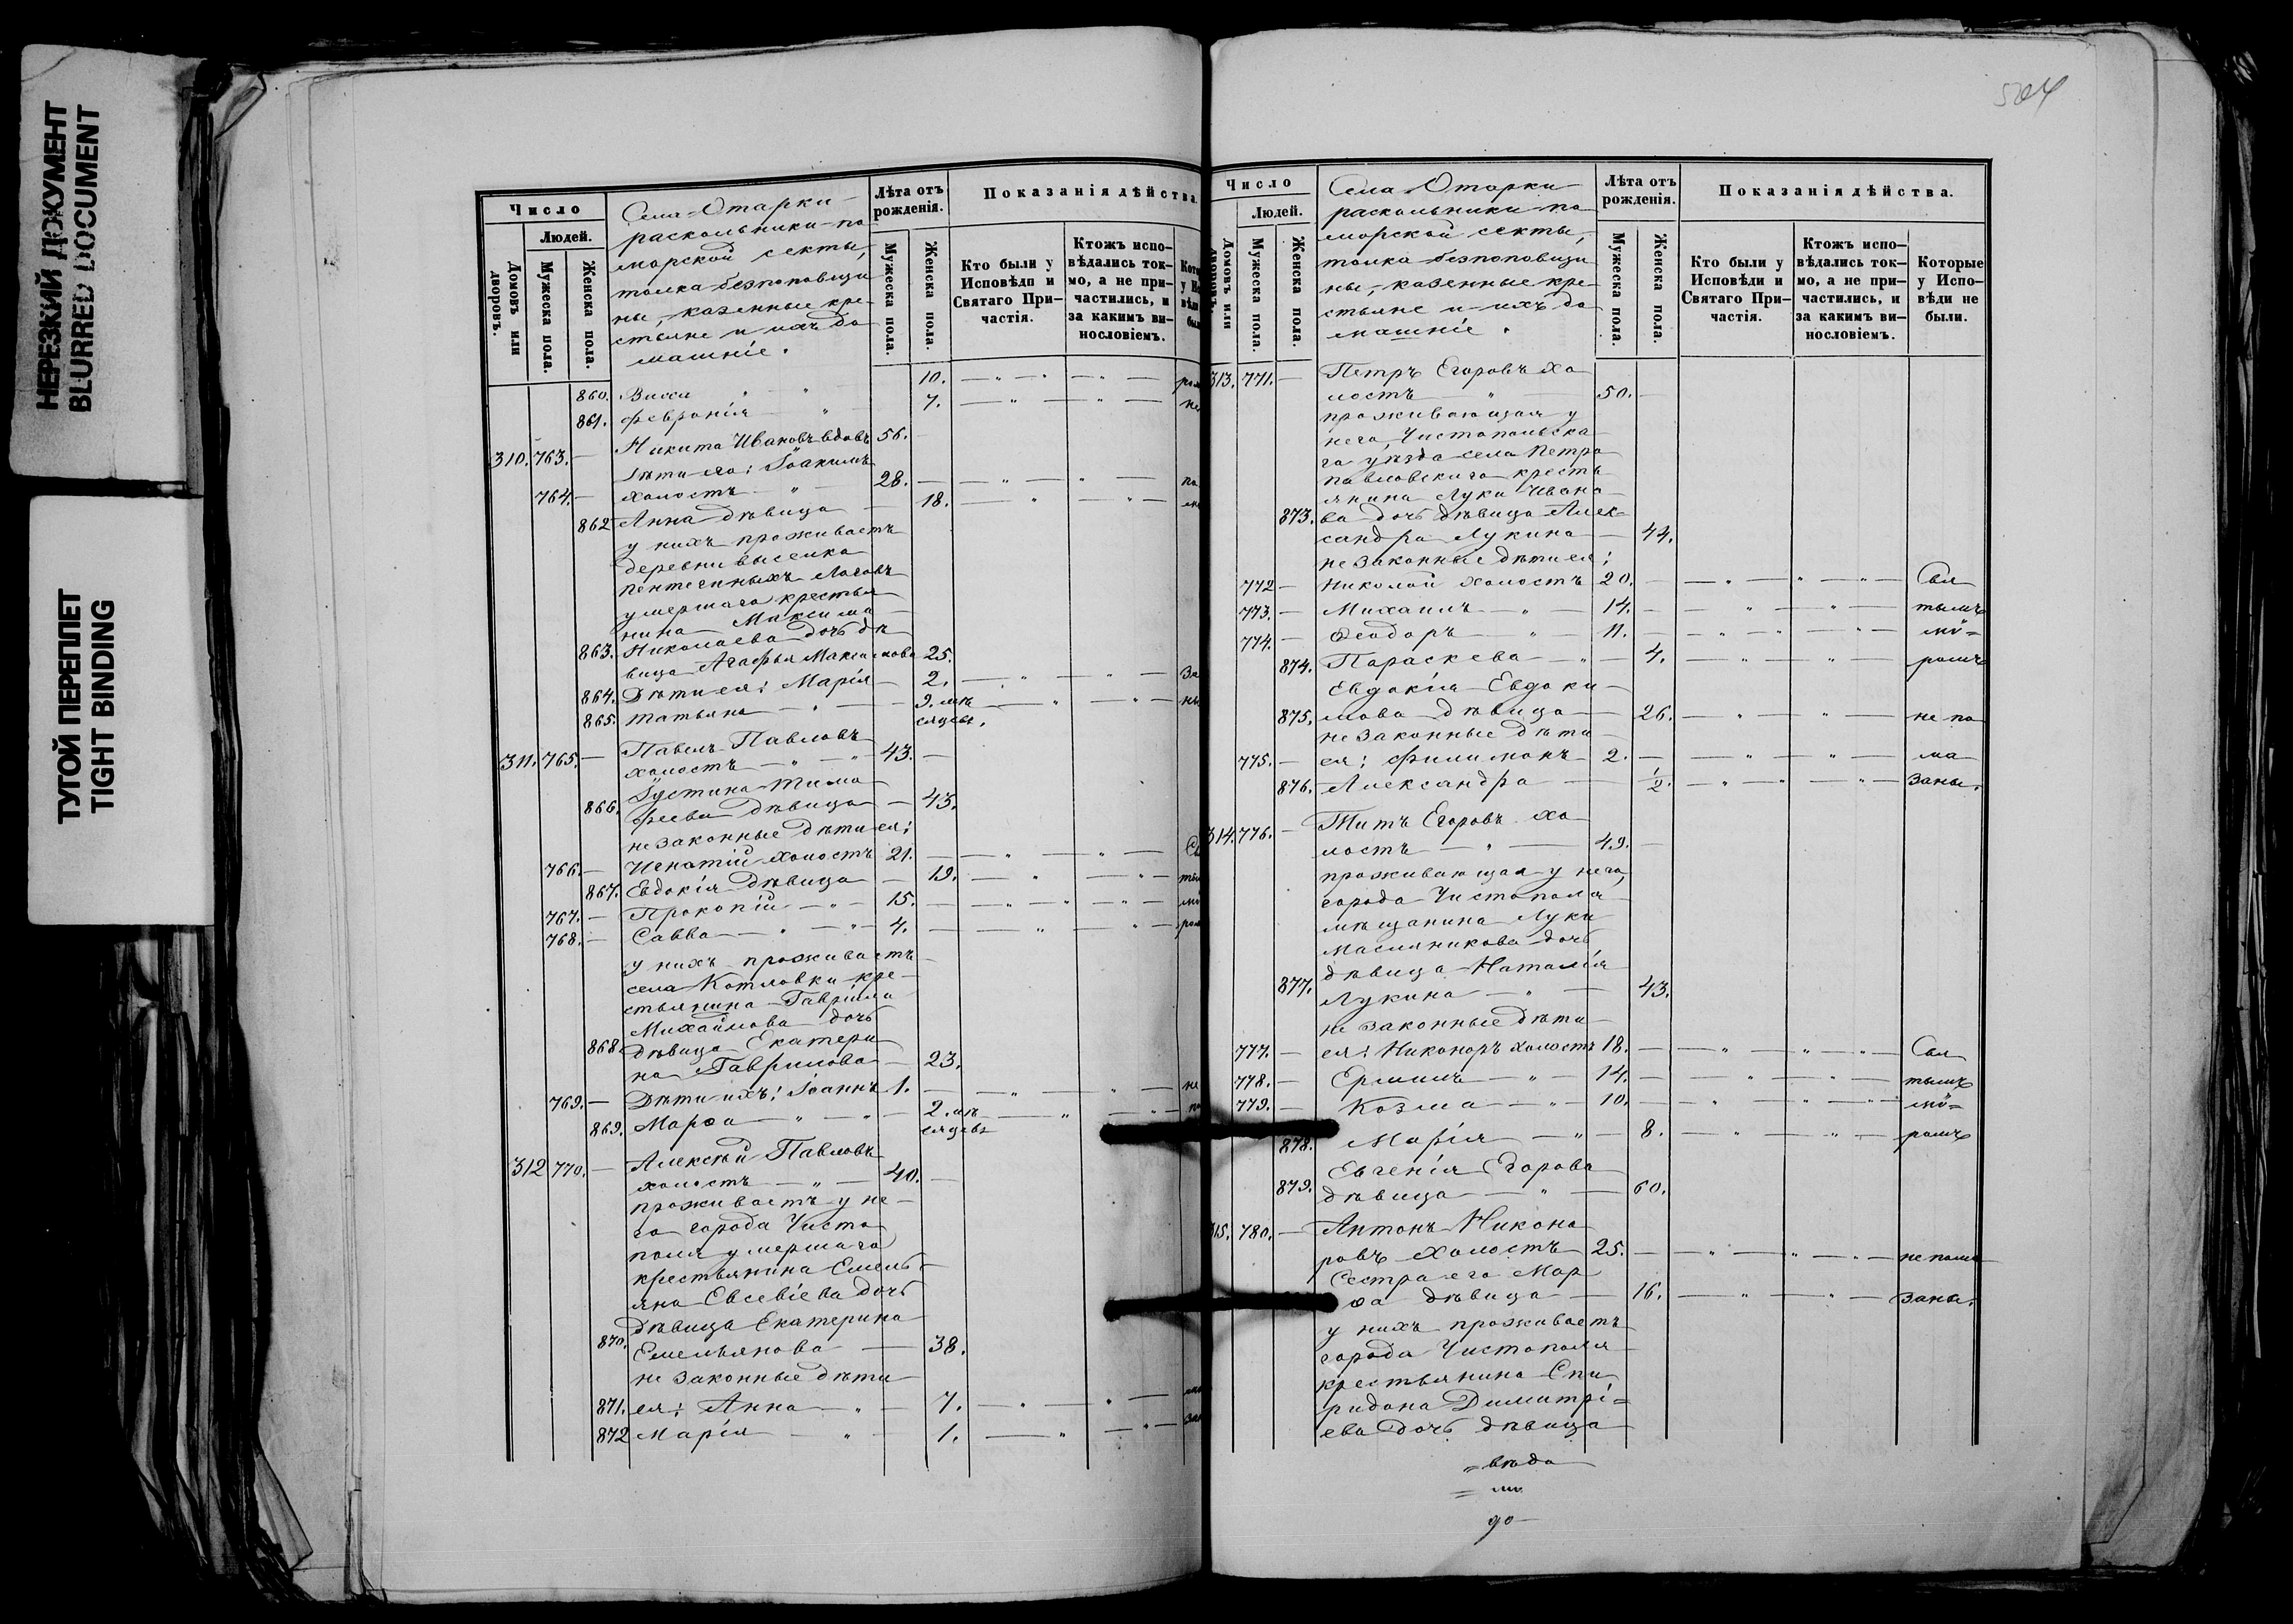 НЕРЕЗКИЙ ДОКУМЕНТ
BLURRED DOCUMENT
ТУГОЙ ПЕРЕПЛЕТ
TIGHT BINDING
Число
Людей.
Домовъ или дворовъ.
Мужеска пола.
Женска пола.
Села Отарки
раскольники по
морской секты,
толка безпоповщи
ны, казенные кре-
стьяне и ихъ до
машніе.
Лѣта отъ рожденія.
Мужеска пола.
Женска пола.
Показанія дѣйства.
Кто были у Исповѣди и Святаго Причастія.
Ктожъ исповѣдались токмо, а не причастились, и за какимъ винословіемъ.
860. Васса " " 10.
861. Февронія " 7.
310. 763. — Никита Ивановъ вдовъ 56. —
Дѣти его: Іоакимъ
764. — холостъ " 28. — по
862 Анна дѣвица — 18.
у нихъ проживаетъ
деревни выселка
умершаго крестья
нина Максима
863. Николаева дочь дѣ
вица Агафья Максимова 25.
864. Дѣти ея: Марія — 2. — за
865. Татьяна — " — 9. мѣ — ны
сяцевъ.
311. 765. — Павелъ Павловъ
холостъ — " — 43. —
Іустина Тимо
866. феева дѣвица — 45.
незаконные дѣти ея:
766. — Игнатій холостъ 21. —
867. Евдокія дѣвица — 19.
767. — Прокопій — " — 15. —
768. — Савва — " — 4. —
у нихъ проживаетъ
села Котловки кре-
стьянина Гавріила
Михайлова дочь
868. дѣвица Екатери
на Гаврилова — 23.
769. — Дѣти ихъ: Іоаннъ 1. — не
869. Марѳа — " — 2. мѣ
сяцевъ
312 770. — Алексѣй Павловъ
холостъ — " — 40. —
проживаетъ у не-
го города Чисто
поля умершаго
крестьянина Емель-
яна Евсевіева дочь
870. дѣвица Екатерина
Емельянова — 38.
незаконные дѣти
871. ея: Анна — " — 7.
872 Марія — " — 1.
504
Число
Людей.
Домовъ или дворовъ.
Мужеска пола.
Женска пола.
Села Отарки
раскольники по
морской секты,
толка безпоповщи
ны, казенные кре-
стьяне и ихъ до
машніе.
Лѣта отъ рожденія.
Мужеска пола.
Женска пола.
Показанія дѣйства.
Кто были у Исповѣди и Святаго Причастія.
Ктожъ исповѣдались токмо, а не причастились, и за какимъ винословіемъ.
Которые у Исповѣди не были.
313. 771. — Петръ Егоровъ хо
лостъ — " — 50. —
проживающая у
него, Чистопольска
го уѣзда села Петро
павловскаго кресть
янина Луки Ивано
873. ва дочь дѣвица Алек-
сандра Лукина — 44.
незаконные дѣти ея:
772 — Николай холостъ 20. — Свя
773. — Михаилъ — " — 14. — тымъ
774. — Ѳеодоръ — " — 11. — мѵ=
874. Параскева — " — 4. — ромъ
Евдокія Евдоки
875. мова дѣвица — 26. — не по
незаконные дѣти
775. — ея: Филимонъ — 2. — ма
876. Александра — 1/2. — заны.
314. 776. — Титъ Егоровъ хо
лостъ — " — 49. —
проживающая у него,
города Чистополя
мѣщанина Луки
Масляникова дочь
877. дѣвица Наталія
Лукина — " — 43.
незаконные дѣти
777. — ея: Никоноръ холостъ 18. — Свя
778. — Ермилъ — " — 14. — тымъ
779. — Козма — " — 10. — мѵ=
878. Марія — " — 8. — ромъ
Евгенія Егорова
879. дѣвица — " — 60.
315. 780. — Антонъ Никоно
ровъ холостъ — 25. — не пома
Сестра его Мар
ѳа дѣвица — 16. — заны.
у нихъ проживаетъ
города Чистополя
крестьянина Спи
ридона Димитрі=
ева дочь дѣвица